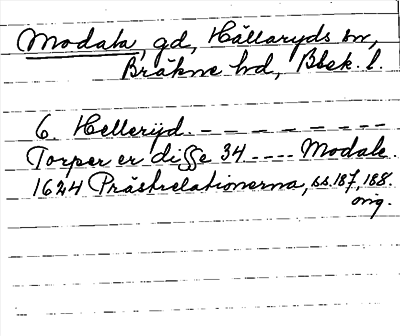 Modala, gd, Hällaryds sn,
Bräkne hd, Blek. l.
6. Hellerijd. – – – – – – – –
Torper er disse 34 ---- Modale.
1624 Prästrelationerna, ss. 187, 188.
orig.